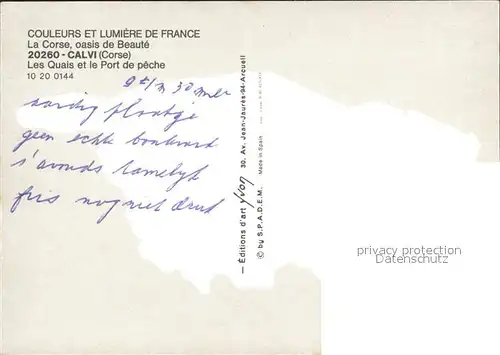 COULEURS ET LUMIÈRE DE FRANCE
La Corse, oasis de Beauté
20260 - CALVI (Corse)
Les Quais et le Port de pêche
10 20 0144
30 mei
aardig plaatsje
geen echte boulevard
s'avonds tamelijk
fris nog niet druk
— Éditions d'art yvon 30, Av. Jean-Jaurès-94-Arcueil
© by S.P.A.D.E.M. Made in Spain
privacy protection
Datenschutz